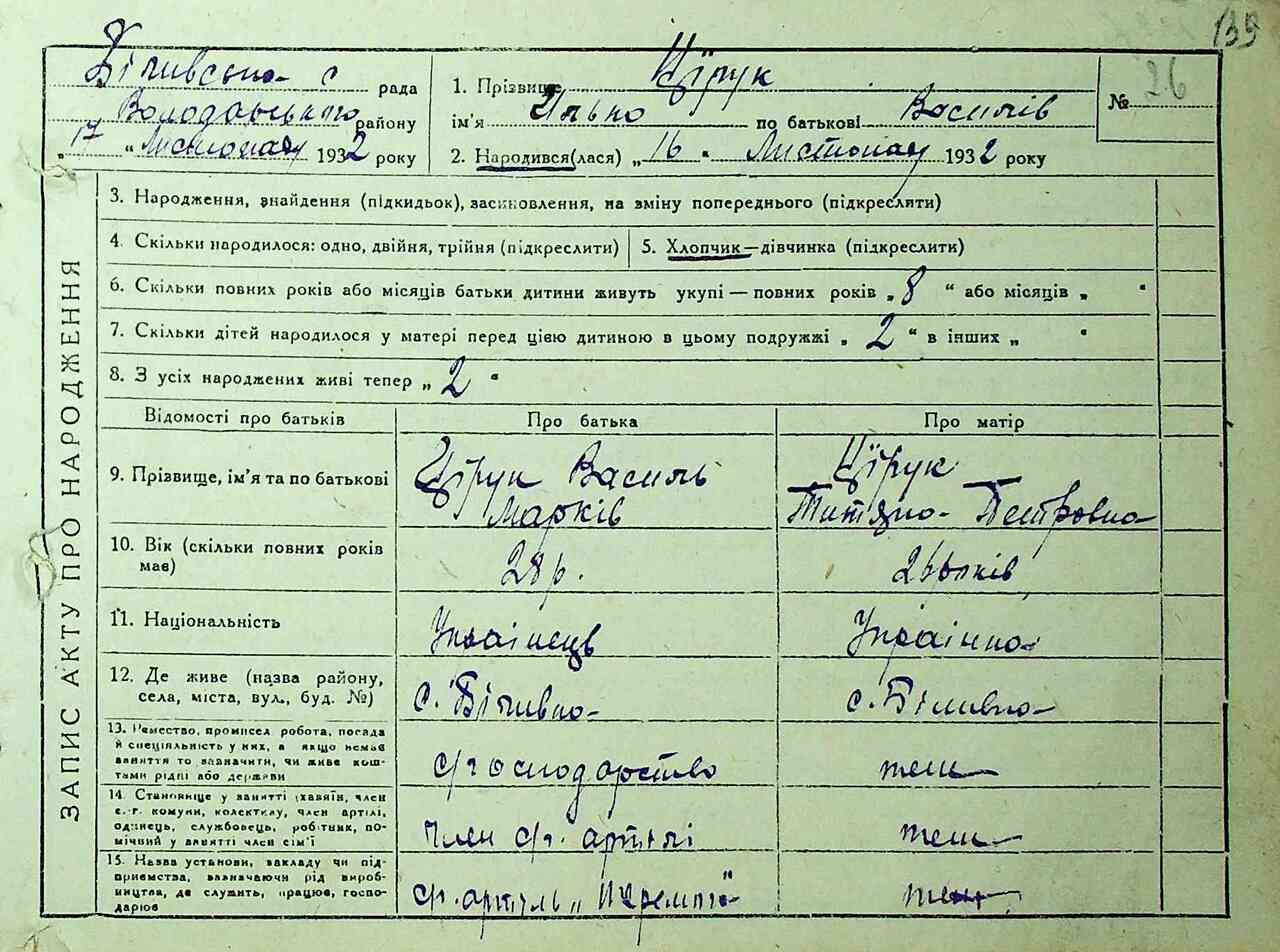 139
Біливська с рада
Володарського району
„ 17 “ Листопада 1932 року
1. Прізвище Цїрук
ім'я Илько по батькові Василів
2. Народився(лася) „ 16 “ Листопада 1932 року
№ 26
ЗАПИС АКТУ ПРО НАРОДЖЕННЯ
3. Народження, знайдення (підкидьок), засиновлення, на зміну попереднього (підкреслити)
4. Скільки народилося: одно, двійня, трійня (підкреслити)
5. Хлопчик—дівчинка (підкреслити)
6. Скільки повних років або місяців батьки дитини живуть укупі — повних років „ 8 “ або місяців „ “
7. Скільки дітей народилося у матері перед цією дитиною в цьому подружжі „ 2 “ в інших „ “
8. З усіх народжених живі тепер „ 2 “
Відомості про батьків
Про батька
Про матір
9. Прізвище, ім'я та по батькові
Цїрук Василь
Марків
Цїрук
Титяна Петровна
10. Вік (скільки повних років
має)
28 р.
26 років
11. Національність
Українець
Українка
12. Де живе (назва району,
села, міста, вул., буд. №)
с. Біливка
с. Біливка
13. Ремество, промисел робота, посада
й спеціяльність у них, а якщо немає
заняття то зазначити, чи живе кош-
тами рідні або держави
с/господарство
теш
14. Становище у занятті (хазяїн, член
с.-г. комуни, колективу, член артілі,
одинець, службовець, робітник, по-
мічний у занятті член сім'ї
член с/г. артілі
теш
15. Назва установи, закладу чи під-
приємства, зазначаючи рід вироб-
ництва, де служить, працює, госпо-
дарює
с/г. артиль
теш